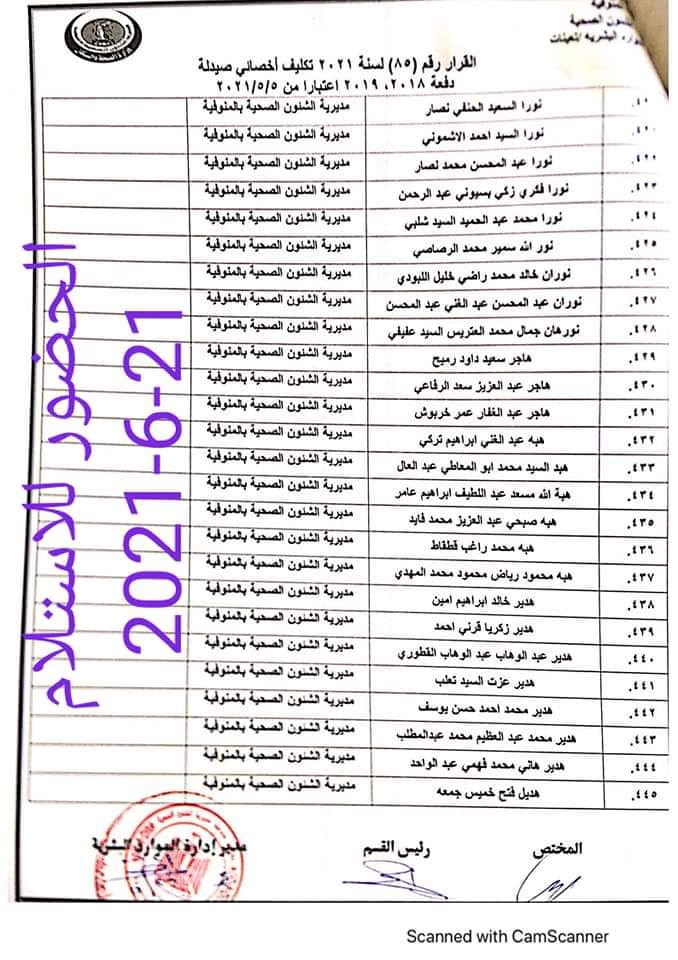 الشئون الصحية
القرار رقم (٨٥) لسنة ٢٠٢١ تكليف أخصائي صيدلة
دفعة ٢٠١٨، ٢٠١٩ اعتبارا من ٢٠٢١/٥/٥
نورا السعيد الحنفي نصار مديرية الشئون الصحية بالمنوفية
نورا السيد احمد الاشموني مديرية الشئون الصحية بالمنوفية
نورا عبد المحسن محمد نصار مديرية الشئون الصحية بالمنوفية
٤٢٣. نورا فكري زكي بسيوني عبد الرحمن مديرية الشئون الصحية بالمنوفية
٤٢٤. نورا محمد عبد الحميد السيد شلبي مديرية الشئون الصحية بالمنوفية
٤٢٥. نور الله سمير محمد الرصاصي مديرية الشئون الصحية بالمنوفية
٤٢٦. نوران خالد محمد راضي خليل اللبودي مديرية الشئون الصحية بالمنوفية
٤٢٧. نوران عبد المحسن عبد الغني عبد المحسن مديرية الشئون الصحية بالمنوفية
٤٢٨. نورهان جمال محمد العتريس السيد عفيفي مديرية الشئون الصحية بالمنوفية
٤٢٩. هاجر سعيد داود رميح مديرية الشئون الصحية بالمنوفية
٤٣٠. هاجر عبد العزيز سعد الرفاعي مديرية الشئون الصحية بالمنوفية
٤٣١. هاجر عبد الغفار عمر خربوش مديرية الشئون الصحية بالمنوفية
٤٣٢. هبه عبد الغني ابراهيم تركي مديرية الشئون الصحية بالمنوفية
٤٣٣. هبد السيد محمد ابو المعاطي عبد العال مديرية الشئون الصحية بالمنوفية
٤٣٤. هبة الله مسعد عبد اللطيف ابراهيم عامر مديرية الشئون الصحية بالمنوفية
٤٣٥. هبه صبحي عبد العزيز محمد فايد مديرية الشئون الصحية بالمنوفية
٤٣٦. هبه محمد راغب قطقاط مديرية الشئون الصحية بالمنوفية
٤٣٧. هبه محمود رياض محمود محمد المهدي مديرية الشئون الصحية بالمنوفية
٤٣٨. هدير خالد ابراهيم امين مديرية الشئون الصحية بالمنوفية
٤٣٩. هدير زكريا قرني احمد مديرية الشئون الصحية بالمنوفية
٤٤٠. هدير عبد الوهاب عبد الوهاب القطوري مديرية الشئون الصحية بالمنوفية
٤٤١. هدير عزت السيد تعلب مديرية الشئون الصحية بالمنوفية
٤٤٢. هدير محمد احمد حسن يوسف مديرية الشئون الصحية بالمنوفية
٤٤٣. هدير محمد عبد العظيم محمد عبدالمطلب مديرية الشئون الصحية بالمنوفية
٤٤٤. هدير هاني محمد فهمي عبد الواحد مديرية الشئون الصحية بالمنوفية
٤٤٥. هديل فتح خميس جمعه مديرية الشئون الصحية بالمنوفية
الحضور للاستلام
2021-6-21
المختص رئيس القسم مدير إدارة الموارد البشرية
Scanned with CamScanner